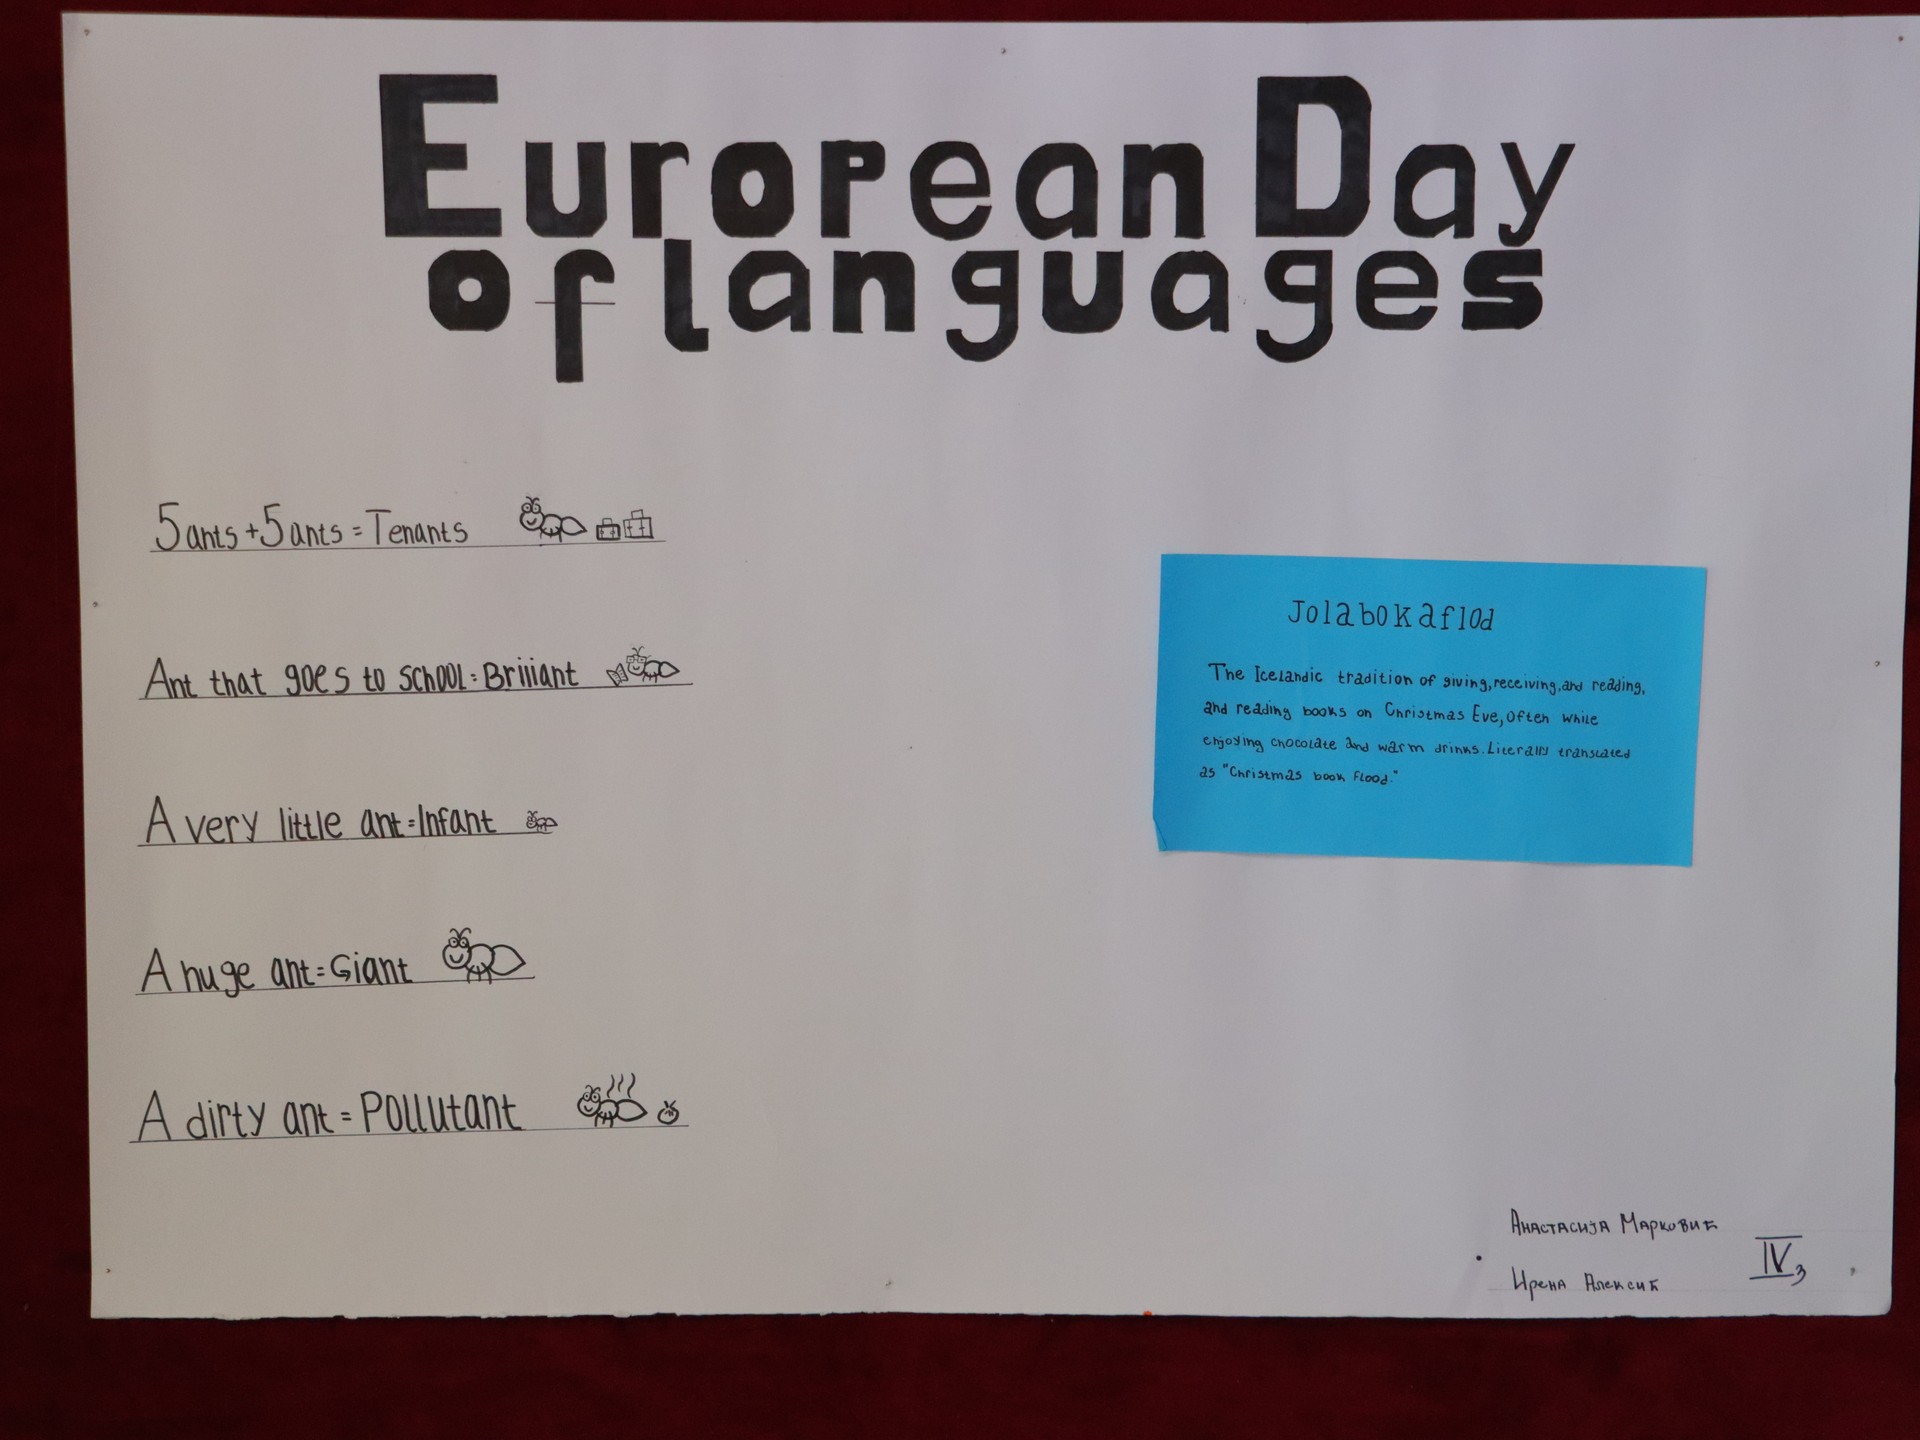 European Day
of languages
5 ants + 5 ants = Tenants
Ant that goes to school = Brilliant
A very little ant = Infant
A huge ant = Giant
A dirty ant = Pollutant
Jolabokaflod
The Icelandic tradition of giving, receiving, and reading,
and reading books on Christmas Eve, often while
enjoying chocolate and warm drinks. Literally translated
as "Christmas book flood."
Анастасија Марковић
Ирена Алексић
IV3